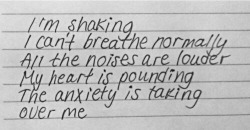 I'm shaking
I can't breathe normally
All the noises are louder
My heart is pounding
The anxiety is taking
over me